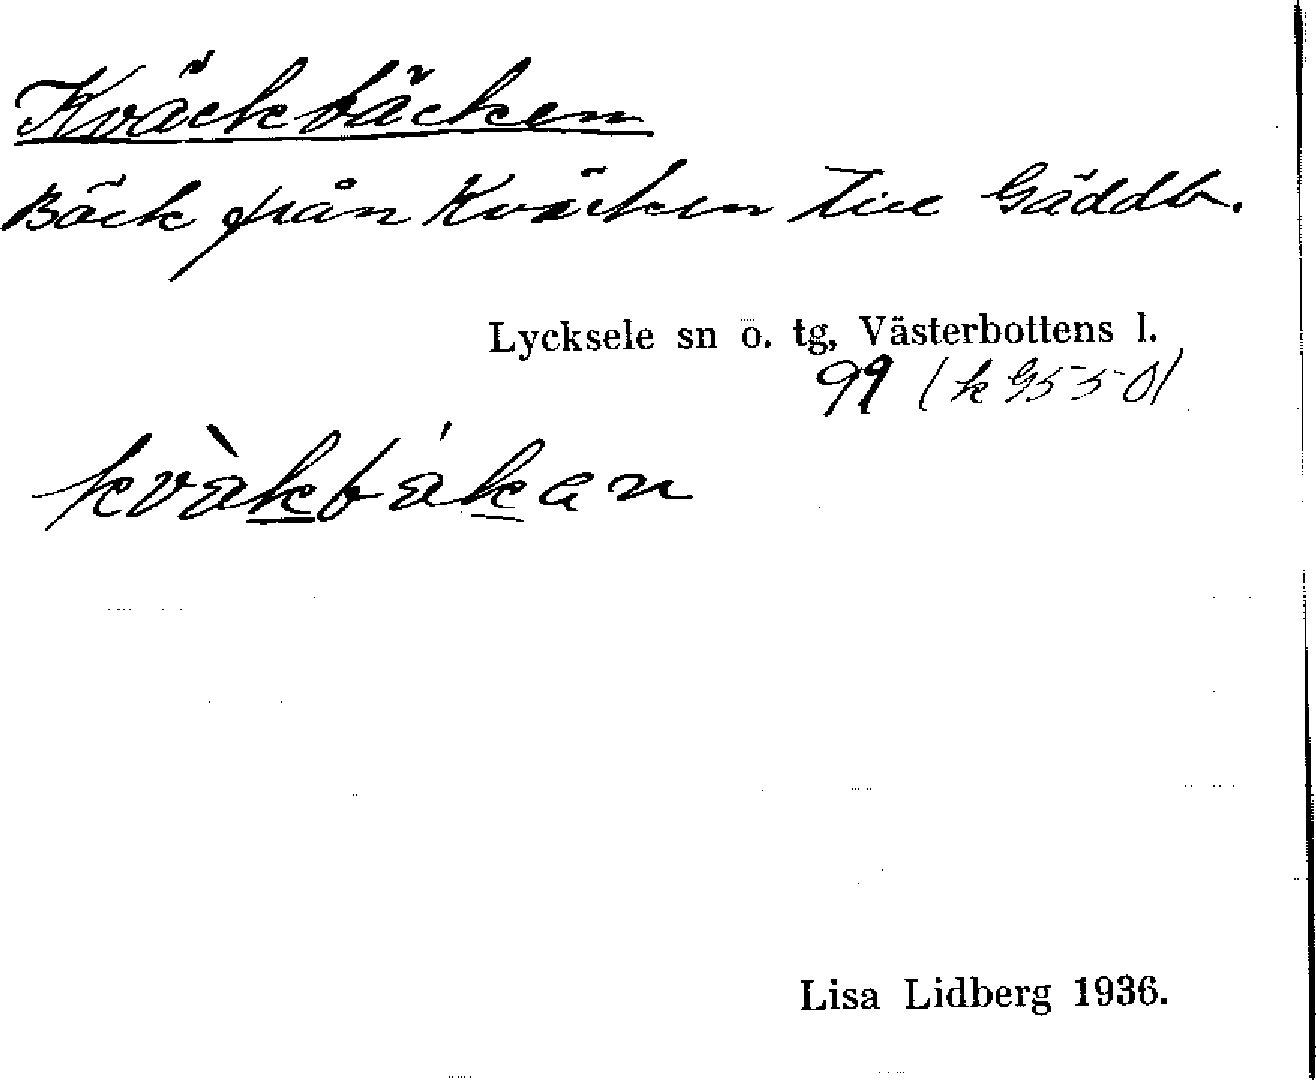 Kväckbäcken
Bäck från Kväcken till Gäddb.
Lycksele sn o. tg, Västerbottens l.
99 (k 9550)
kvàkbákan
Lisa Lidberg 1936.